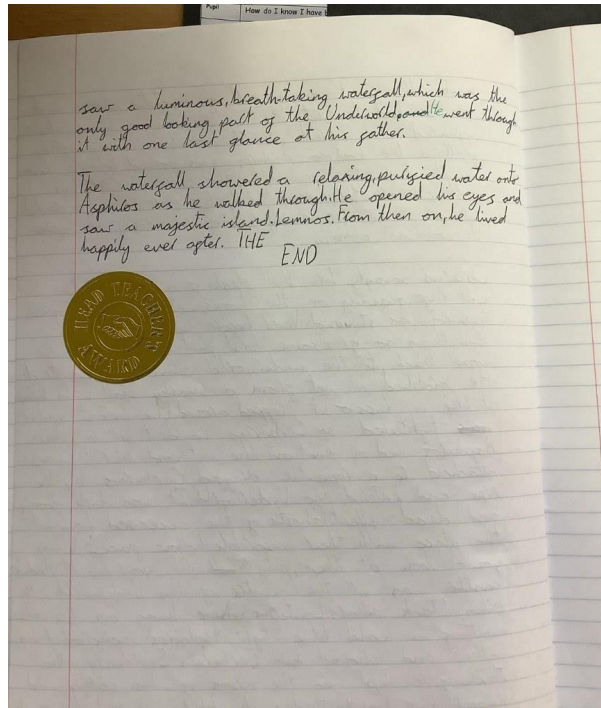 Pupil
How do I know I have
saw a luminous, breath-taking waterfall, which was the
only good looking part of the Underworld. and He went through
it with one last glance at his father.
The waterfall showered a relaxing, purified water onto
Asphiros as he walked through. He opened his eyes and
saw a majestic island. Lemnos. From then on, he lived
happily ever after. THE
END
HEAD TEACHER'S
AWARD